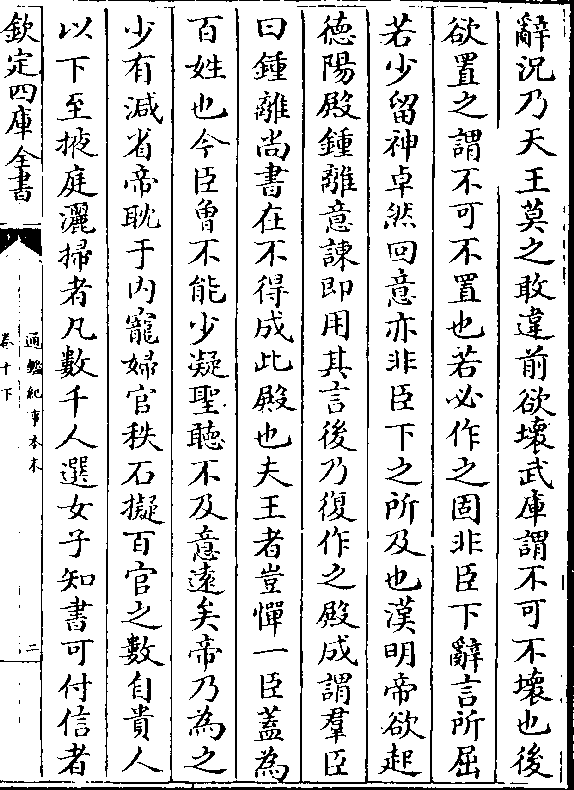 辭況乃天王莫之敢違前欲壞武庫謂不可不壞也後
欲置之謂不可不置也若必作之固非臣下辭言所屈
若少留神卓然回意亦非臣下之所及也漢明帝欲起
德陽殿鍾離意諫即用其言後乃復作之殿成謂羣臣
曰鍾離尚書在不得成此殿也夫王者豈憚一臣蓋為
百姓也今臣曾不能少凝聖聽不及意遠矣帝乃為之
少有減省帝耽于内寵婦官秩石擬百官之數自貴人
以下至掖庭灑掃者凡數千人選女子知書可付信者
欽定四庫全書
通鑑紀事本末
卷十下
二